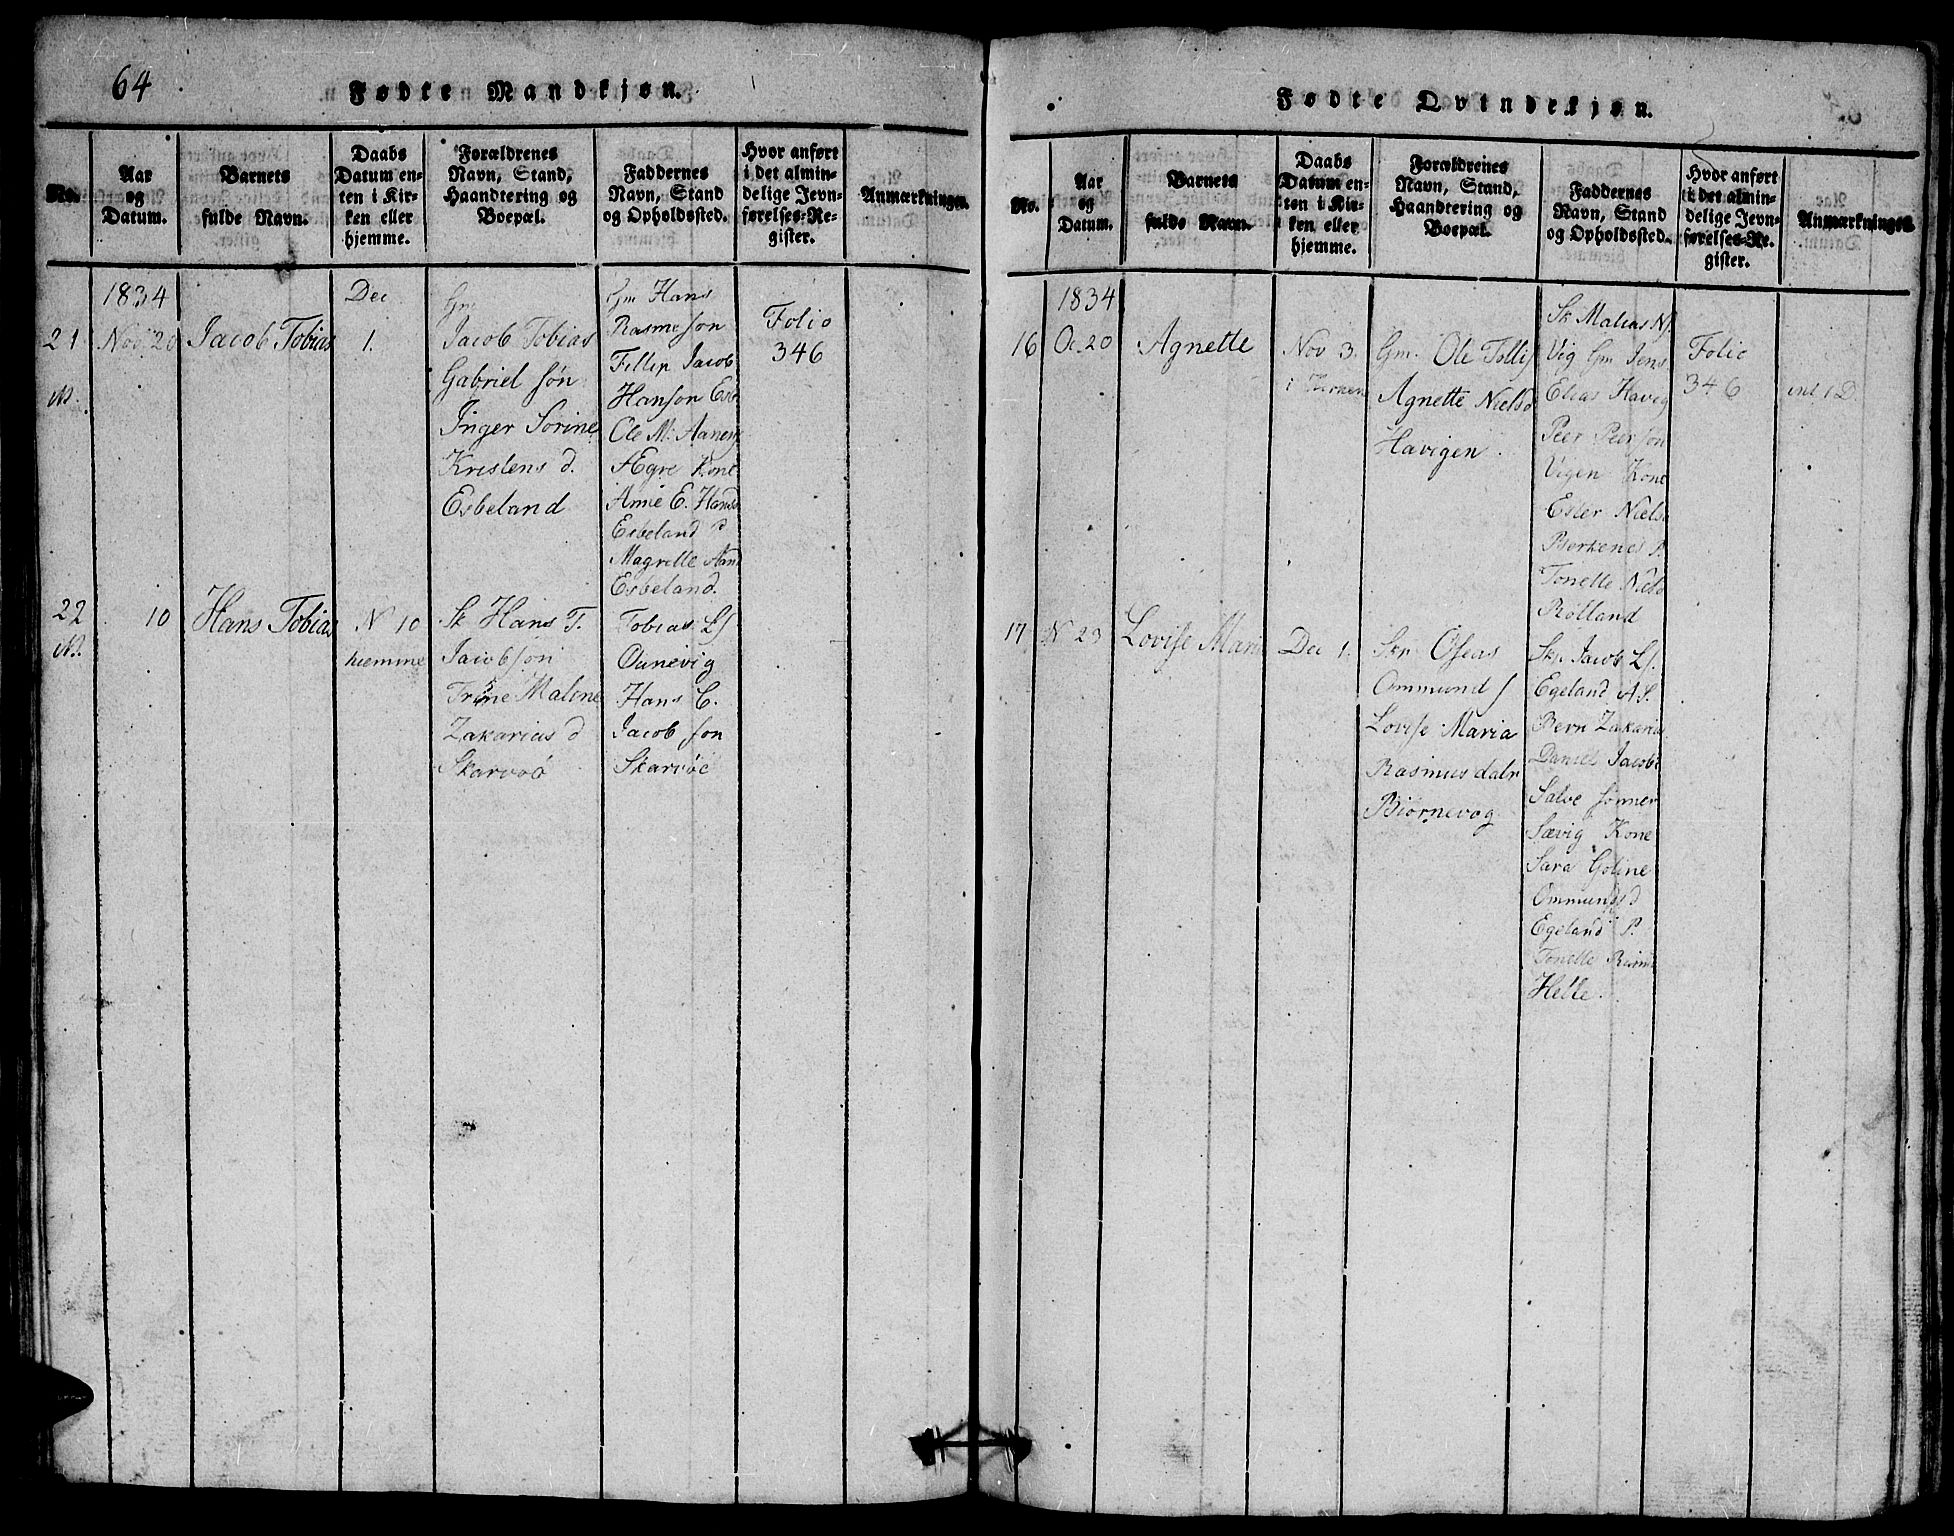 64
Fødte Mandkjøn.
No.
Aar
og
Datum.
Barnets
fulde Navn.
Daabs
Datum en-
ten i Kir-
ken eller
hjemme.
Forældrenes
Navn, Stand,
Haandtering og
Boepæl.
Faddernes
Navn, Stand
og Opholdssted.
Hvor anført
i det almin-
delige Jevn-
førelses-Re-
gister.
Anmærkninger.
1834
21
N.
Nov 20
Jacob Tobias
Dec
1.
Gm
Jacob Tobias
Gabriel søn
Inger Sørine
Kristens d.
Esbeland
Gm Hans
Rasmuson
Fillip Jacob
Hanson Esb
Ole M. Aanens
Ægre Kone
Anne E. Hans
Esbeland P
Magrette Aand
Esbeland.
Folio
346
22
N.
10
Hans Tobias
N 10
hiemme
Sk Hans T.
Jacobson
Trine Maline
Zakarias d
Skarvøe
Tobias Ls
Ounevig
Hans C.
Jacob son
Skarvøe
Fødte Qvindekjøn.
No.
Aar
og
Datum.
Barnets
fulde Navn.
Daabs
Datum en-
ten i Kir-
ken eller
hjemme.
Forældrenes
Navn, Stand,
Haandtering og
Boepæl.
Faddernes
Navn, Stand
og Opholdssted.
Hvor anført
i det almin-
delige Jevn-
førelses-Re-
gister.
Anmærkninger.
1834
16
Oc. 20
Agnette
Nov 3.
i Kirken
Gm. Ole Tollis
Agnette Nielsd
Havigen.
Sk Matias Ns
Vig Gm Jens
Elias Havig
Peer Peerson
Vigen Kone
Ester Niels
Berkenes P.
Tonette Niels
Rolland
Folio
346
inl 1 D.
17
N 23
Lovise Mari
Dec 1.
Skp Oseas
Ommund s
Lovise Maria
Rasmus datr
Biørnevog
Skp Jacob Ls.
Egeland A S.
Bern Zakarias
Daniel Jacobs
Salve sønner
Sævig Kone
Sara Goline
Ommunds d
Egeland P.
Tonette Rasm
Helle.